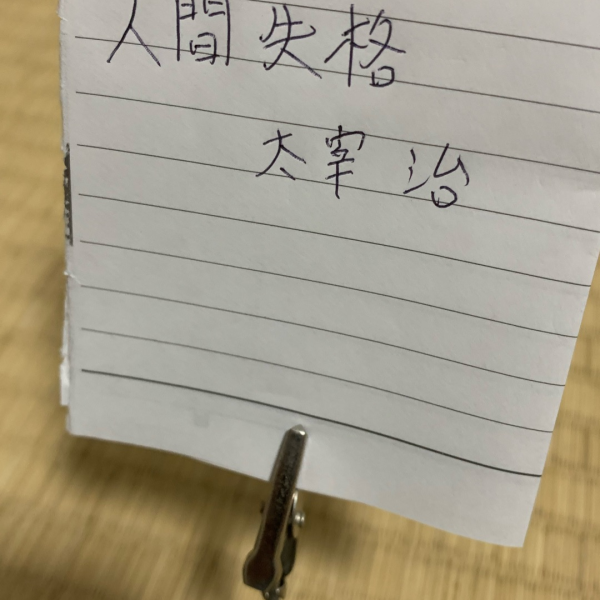 人間失格
太宰治